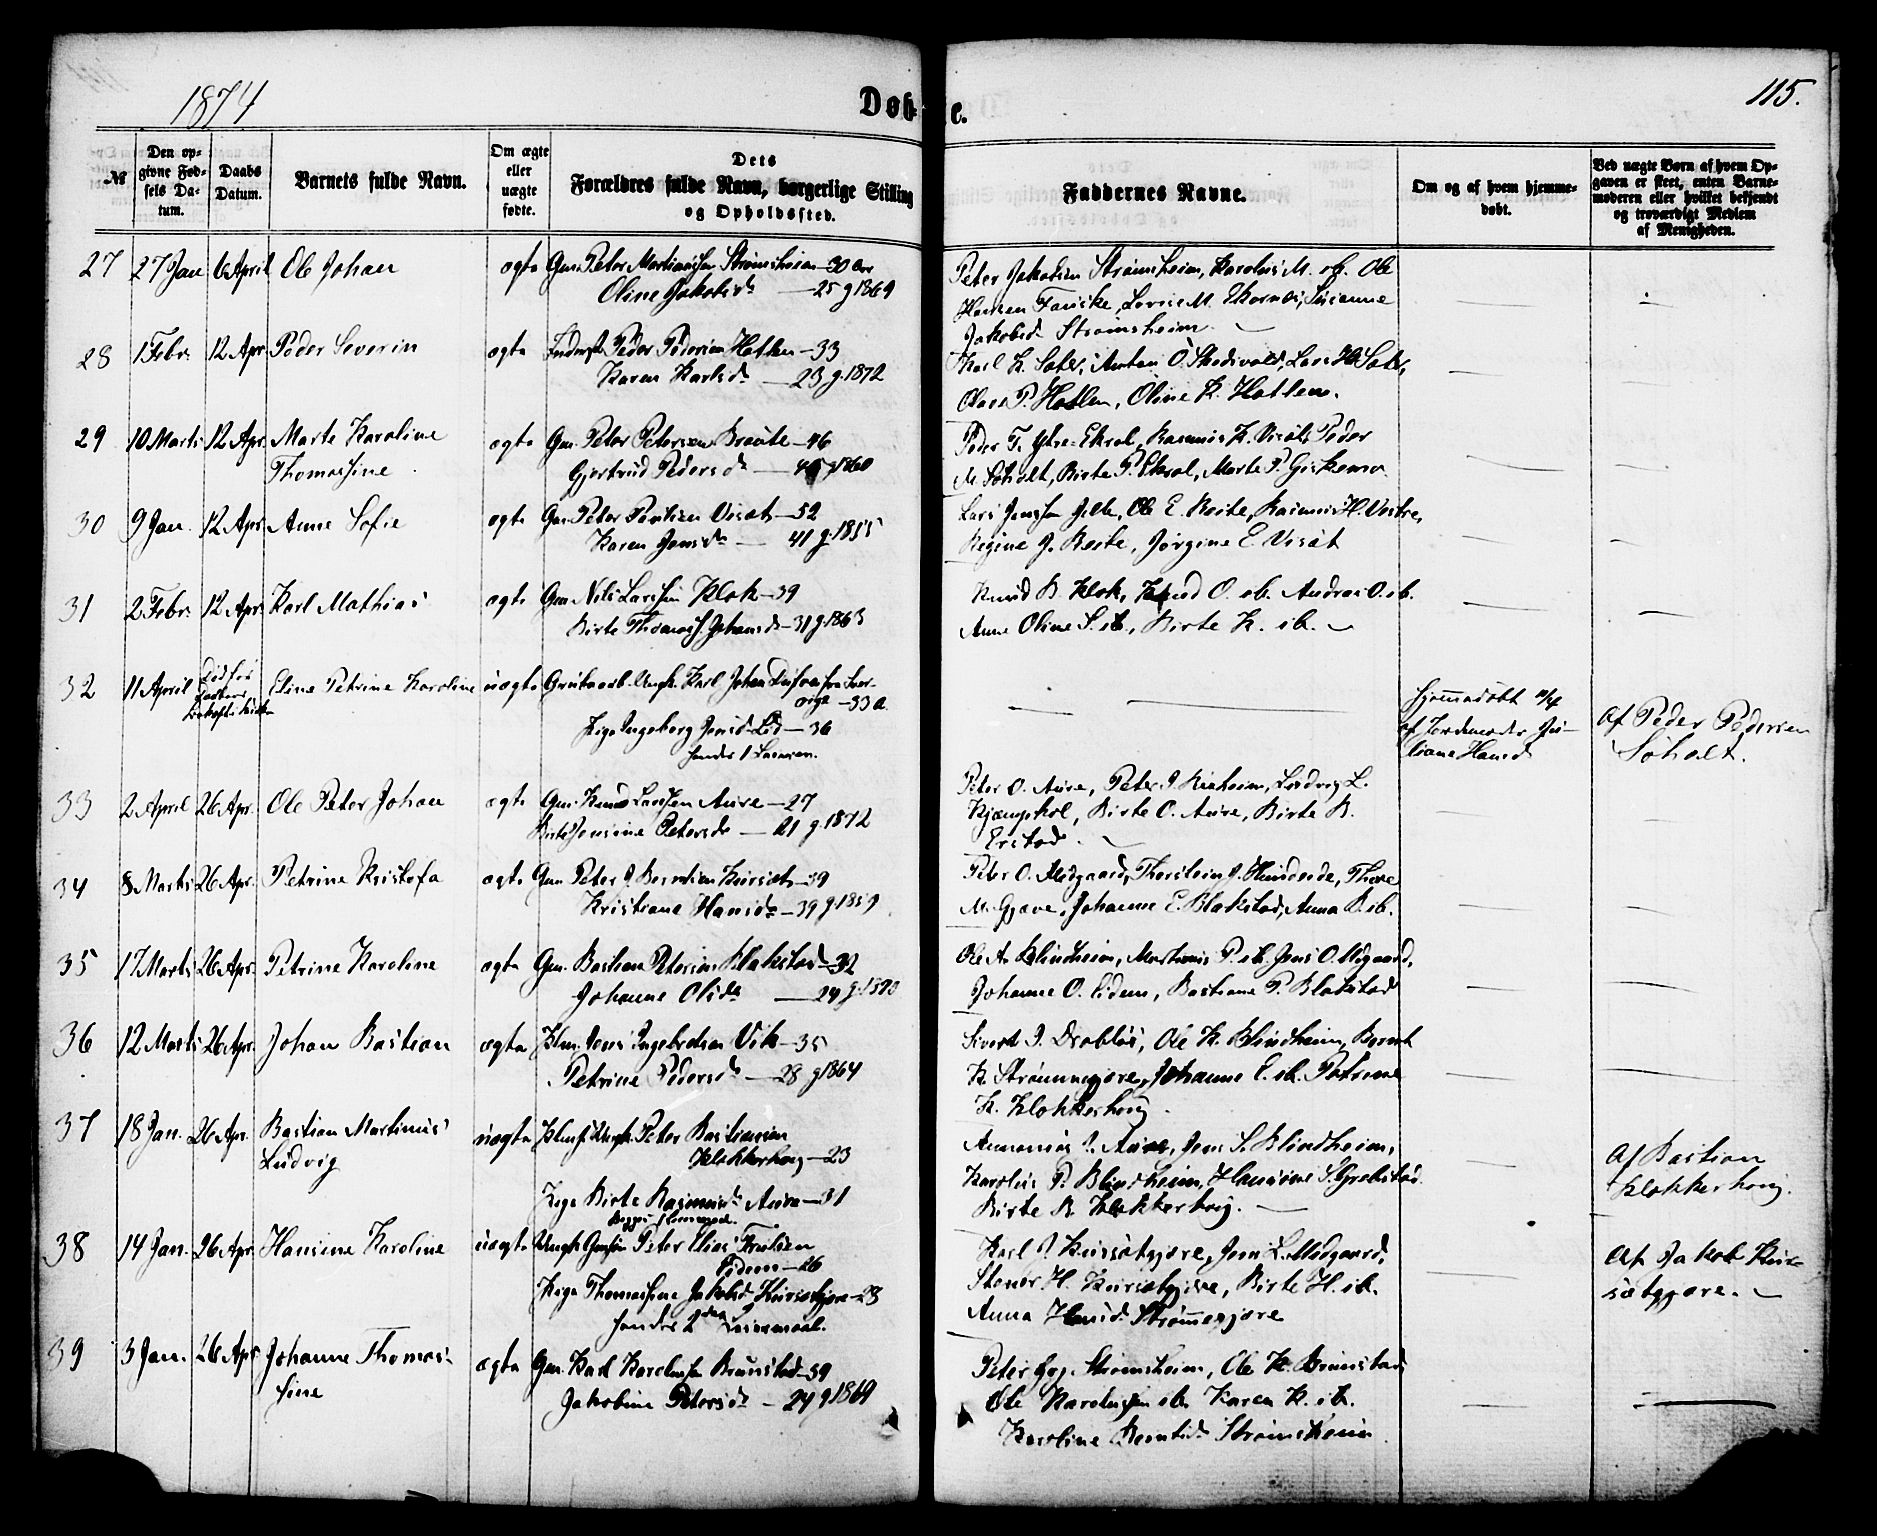 1874
Døbte.
115.
№
Den opgivne Fødsels Datum.
Daabs Datum.
Barnets fulde Navn.
Om ægte eller uægte fødte.
Dets Forældres fulde Navn, borgerlige Stilling og Opholdssted.
Faddernes Navne.
Om og af hvem hjemmedøbt.
Ved uægte Børn af hvem Opgaven er skeet, enten Barnemoderen eller hvilket bekjendt og troværdigt Medlem af Menigheden.
27 27 Jan 6 April Ole Johan ægte Gm. Peter Martinussen Strømsheim – 30 Aar
Oline Jakobsd – 25 g 1869
Peter Jakobsen Strømsheim, Karolus M. ib. Ole
Hansen Fauske, Lovise M. Ekornes, Susanne
Jakobsd Strømsheim.
28 1 Febr. 12 Apr Peder Severin ægte Inderst Peder Pedersen Hatlen – 33
Karen Karlsd – 23 g. 1872
Karl K. Sater, Anton O. Skodivold, Lars K. Sater,
P. Hatlen, Oline K. Hatlen.
29 10 Marts 12 Apr. Marte Karoline ægte Gm. Peter Petersen Braute – 46
Thomassine
Gjertrud Pedersd – g 1860
Peder T. Ytre-Ekrol, Rasmus K. Visæt, Peder
M. Søholt, Birte P. Ekrol, Marte P. Giskemo
30 9 Jan. 12 Apr Anne Sofie ægte Gm. Peter Poulsen Visæt – 52
Karen Jensd – 41 g. 1855
Lars Jensen, Ole E. Reite, Rasmus H. Vestre,
Regine J. Reite, Jørgine E. Visæt
31 2 Febr. 12 Apr. Karl Mathias ægte Gm. Nils Larssen Klok – 39
Birte Thomas. Johansd – 31 g. 1863
Knud B. Klok, Knud O. ib. Andreas O. ib.
Anne Oline S. ib., Birte K. ib.
32 11 April Død før Eline Petrine Karoline uægte Grubearb. Ungk. Karl Johan fra Sverige – 33 a
Pige Ingeborg Jensd Lid – 36
hendes 1 Leierm.
hjemmedøbt 11/4
af Jordemoder Juliane Hansd
Af Peder Pedersen
Søholt.
33 2 April 26 Apr. Ole Peter Johan ægte Gm. Knud Larssen Aure – 27
Birte Jensine Petersd – 21 g. 1872
Peter O. Aure, Peter J. Riksheim, Ludvig L.
Kjæmpehol, Birte O. Aure, Birte B.
Erstad.
34 8 Marts 26 Apr. Petrine Kristofa ægte Gm. Peter J. Berntsen Kursæt – 39
Kristiane Hansd – 39 g 1859
Peter O. Midgaard, Thorstein J. Hundeide, Thore
M. Gjøve, Johanne E. Blakstad, Anna B. ib.
35 17 Marts 26 Apr. Petrine Karoline ægte Gm. Bastian Petersen Blakstad – 32
Johanne Olsd – 24 g. 1870
Ole A. Blindheim, Martinus P. ib. Jens O. Midgaard,
Johanne O. Eidem, Bastiane P. Blakstad
36 12 Marts 26 Apr. Johan Bastian ægte Hsm. Jens Ingebretsen Vik – 35
Petrine Pedersd – 28 g 1864
Sivert I. Drabløs, Ole K. Blindheim, Bernt
K. Strømmegjære, Johanne E. ib. Petrine
K. Klokkerhoug.
37 18 Jan. 26 Apr. Bastian Martinus uægte Ungk. Peter Bastiansen
Ludvig Klokkerhoug – 23
Pige Birte Rasmusd Aure – 31
Begges 1 Leiermaal.
J. Aure, Jens S. Blindheim,
Karolus P. Blindheim, Hansine S. Grebstad
Birte B. Klokkerhoug.
Af Bastian
Klokkerhoug.
38 14 Jan. 26 Apr. Hansine Karoline uægte Ungk. Peter Elias
Eidem – 26
Pige Thomassine Jakobsd Kursætgjære – 23
hendes 2den Leiermaal.
Karl I. Kursætgjære, Jens L. Midgaard,
Stener H. Kursætgjære, Birte H. ib.
Anna Hansd Strømmegjære
Af Jakob Kursætgjære.
39 3 Jan. 26 Apr Johanne Thomassine ægte Gm. Karl Karolussen Brunstad – 39
Jakobine Petersd – 24 g 1869
Peter Strømsheim, Ole K. Brunstad
Ole Karolussen ib. Karen K. ib.
Karoline Berntsd Strømsheim